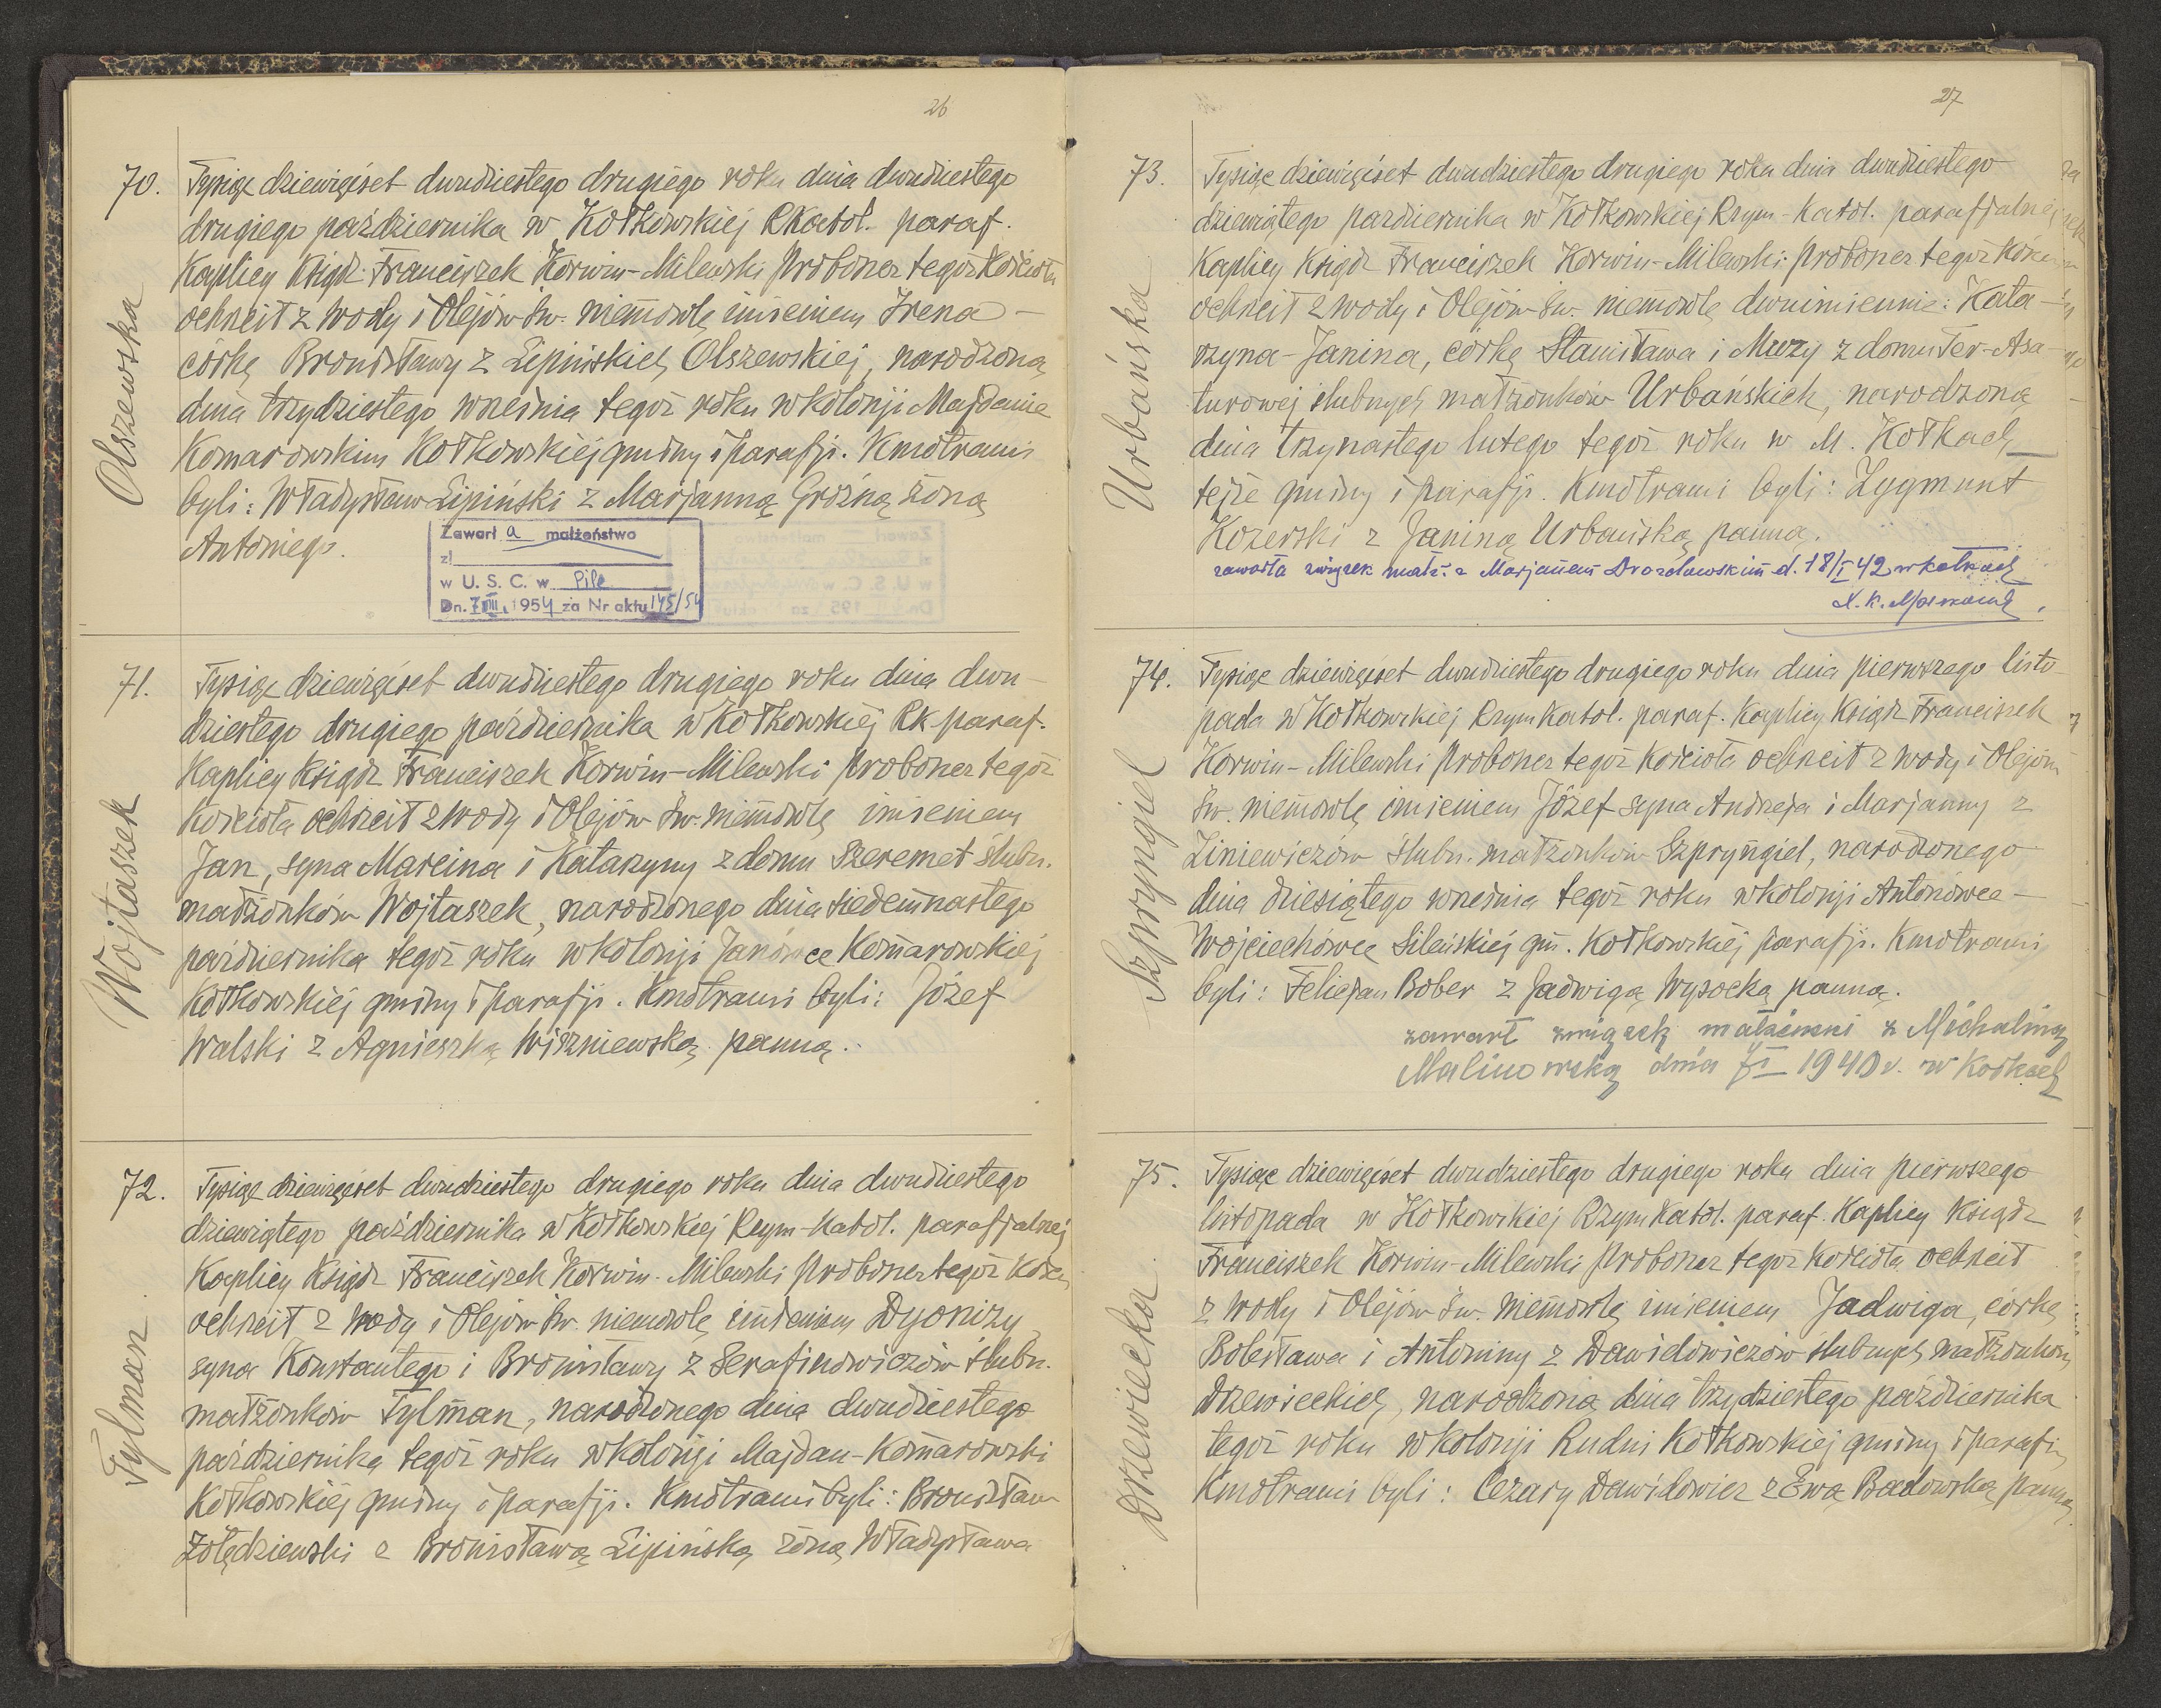 26
Olszewska
70. Tysiąc dziewięćset dwudziestego drugiego roku dnia dwudziestego
drugiego października w Kołkowskiej RKatol. paraf.
Kaplicy Ksiądz Franciszek Korwin-Milewski Proboszcz tegoż Kościoła
ochrzcił z wody i Olejów Św. niemowlę imieniem Irena -
córkę Bronisławy z Lipińskich Olszewskiej, narodzoną
dnia trzydziestego września tegoż roku w kolonji Majdanie
Komarowskim Kołkowskiej gminy i parafji. Kmotrami
byli: Władysław Lipiński z Marjanną Groźną żoną
Antoniego.
Zawarł a małżeństwo
z
w U. S. C. w Pile
Dn. 7 VIII 1954 za Nr aktu 145/54
Wojtaszek
71. Tysiąc dziewięćset dwudziestego drugiego roku dnia dwu-
dziestego drugiego października w Kołkowskiej RK-paraf.
Kaplicy Ksiądz Franciszek Korwin-Milewski Proboszcz tegoż
Kościoła ochrzcił z wody i Olejów Św. niemowlę imieniem
Jan, syna Marcina i Katarzyny z domu Szeremet ślubn.
małżonków Wojtaszek, narodzonego dnia siedemnastego
października tegoż roku w kolonji Janówce Komarowskiej
Kołkowskiej gminy i parafji. Kmotrami byli: Józef
Walski z Agnieszką Wiszniewską panną.
Tylman
72. Tysiąc dziewięćset dwudziestego drugiego roku dnia dwudziestego
dziewiątego października w Kołkowskiej Rzym-Katol. parafjalnej
Kaplicy Ksiądz Franciszek Korwin-Milewski Proboszcz tegoż Kośc.
ochrzcił z wody i Olejów Św. niemowlę imieniem Dyonizy
syna Konstantego i Bronisławy z Serafinowiczów ślubn.
małżonków Tylman, narodzonego dnia dwudziestego
października tegoż roku w kolonji Majdan-Komarowski
Kołkowskiej gminy i parafji. Kmotrami byli: Bronisław
Żołędziewski z Bronisławą Lipińską żoną Władysława
27
Urbańska
73. Tysiąc dziewięćset dwudziestego drugiego roku dnia dwudziestego
dziewiątego października w Kołkowskiej Rzym-Katol. parafjalnej
Kaplicy Ksiądz Franciszek Korwin-Milewski Proboszcz tegoż
ochrzcił z wody i Olejów Św. niemowlę dwuimiennie: Kata-
rzyna-Janina, córkę Stanisława i z domu Ter-Asa-
turowej ślubnych małżonków Urbańskich, narodzoną
dnia trzynastego lutego tegoż roku w M. Kołkach
tejże gminy i parafji. Kmotrami byli: Zygmunt
Kozerski z Janiną Urbańską panną.
zawarła związek małż. z Marjanem Drozdowskim d. 18/I 42 w Kołkach
Szpryngiel
74. Tysiąc dziewięćset dwudziestego drugiego roku dnia pierwszego listo-
pada w Kołkowskiej RzymKatol. paraf. Kaplicy Ksiądz Franciszek
Korwin-Milewski Proboszcz tegoż Kościoła ochrzcił z wody i Olejów
Św. niemowlę imieniem Józef syna Andrzeja i Marjanny z
Liniewiczów ślubn. małżonków Szpryngiel, narodzonego
dnia dziesiątego września tegoż roku w kolonji Antonówce -
Wojciechówce Sileńskiej gm. Kołkowskiej parafji. Kmotrami
byli: Felicjan Bober z Jadwigą Wysocką panną.
zawarł związek małżeński z Michaliną
Malinowską dnia 1940 r. w Kołkach
Drzewiecka
75. Tysiąc dziewięćset dwudziestego drugiego roku dnia pierwszego
listopada w Kołkowskiej RzymKatol. paraf. Kaplicy Ksiądz
Franciszek Korwin-Milewski Proboszcz tegoż Kościoła ochrzcił
z wody i Olejów Św. niemowlę imieniem Jadwiga, córkę
Bolesława i Antoniny z Dawidowiczów ślubnych małżonków
Drzewieckich, narodzoną dnia trzydziestego października
tegoż roku w kolonji Rudni Kołkowskiej gminy i parafji
Kmotrami byli: Cezary Dawidowicz z Ewą Badowską panną.